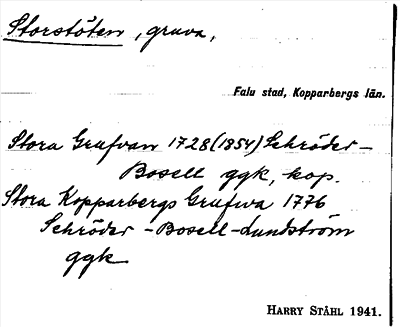 Storstöten, gruva,
Falu stad, Kopparbergs län.
Stora Grufvan 1728 (1854) Schröder-
Bosell ggk, kop.
Stora Kopparbergs Grufwa 1776
Schröder-Bosell-Lundström
ggk
HARRY STÅHL 1941.